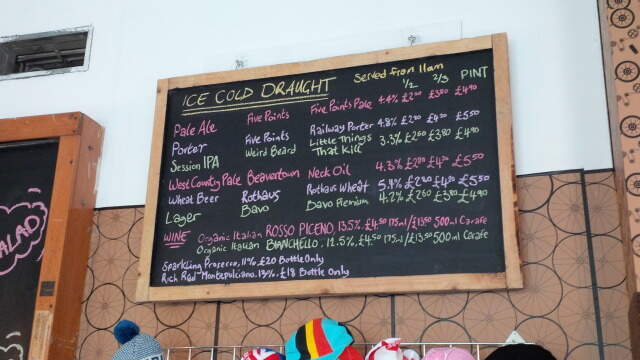 ICE COLD DRAUGHT Served from 11am
1/2 2/3 PINT
Pale Ale Five Points Five Points Pale 4.4% £2.50 £3.80 £4.90
Porter Five Points Railway Porter 4.8% £2.90 £4.20 £5.50
Session IPA Weird Beard Little Things That Kill 3.3% £2.60 £3.80 £4.90
West Country Pale Beavertown Neck Oil 4.3% £4.20 £5.50
Wheat Beer Rothaus Rothaus Wheat 5.4% £2.90 £4.20 £5.50
Lager Bavo Bavo Premium 4.2% £2.60 £3.80 £4.90
WINE Organic Italian ROSSO PICENO, 13.5% £4.50 175ml/£13.50 500ml Carafe
Organic Italian BIANCHELLO, 12.5%, £4.50 175ml/£13.50 500ml Carafe
Sparkling Prosecco, 11%, £20 Bottle Only
Rich Red Montepulciano, 13%, £18 Bottle Only
SALAD